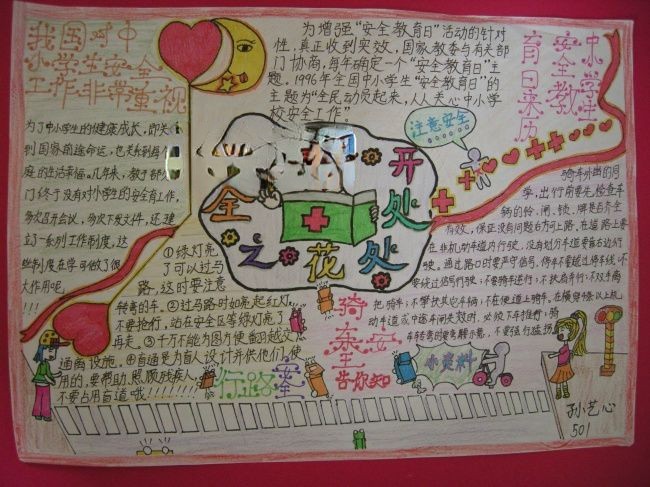 我国对中
小学生安全
工作非常重视
为了中小学生的健康成长，即关
到国家前途命运，也关到每个
庭的生活幸福。几年来，教于部
门终于没有对小学生的安全育工作，
多次召开会议，多次下发文件，还建
立了一系列工作制度，这
些制度在学习做了很
大作用吧，
!!!
为增强“安全教育日”活动的针对
性，真正收到实效，国家教委与有关部
门协商，每年确定一个“安全教育日”主
题。1996年全国中小学生“安全教育日”的
主题为“全民动员起来，人人关心中小学
校安全工作”。
中小学生
安全教
育日来历
注意安全
全之花
开处处
①绿灯亮
了可以过马
路，这时要注意
转弯的车。②过马路时如亮起红灯，
不要抢行，站在安全区等绿灯亮了
再走。③千万不能为图方便翻越交
通商设施。④盲道是为盲人设计并供他们使
用的，要帮助、照顾残疾人，
不要占用盲道哦!!!!!!!
行路安全
骑车安全
告你知
小资料
骑车外出的同
学，出行前要先检查车
辆的铃、闸、锁、牌是否齐全
有效，保证没有问题方可上路。在道路上要
在非机动车道内行驶，没有划分车道要靠右边行
驶。通过路口时要严守信号，停车不要越过停车线；不
要绕过信号行驶；不要骑车逆行；不扶肩并行；不双手离
把骑车；不攀扶其它车辆；不在便道上骑车。在横穿4条以上机
动车道或中途车闸失效时，必须下车推行；骑
车转弯时要先
孙艺心
501